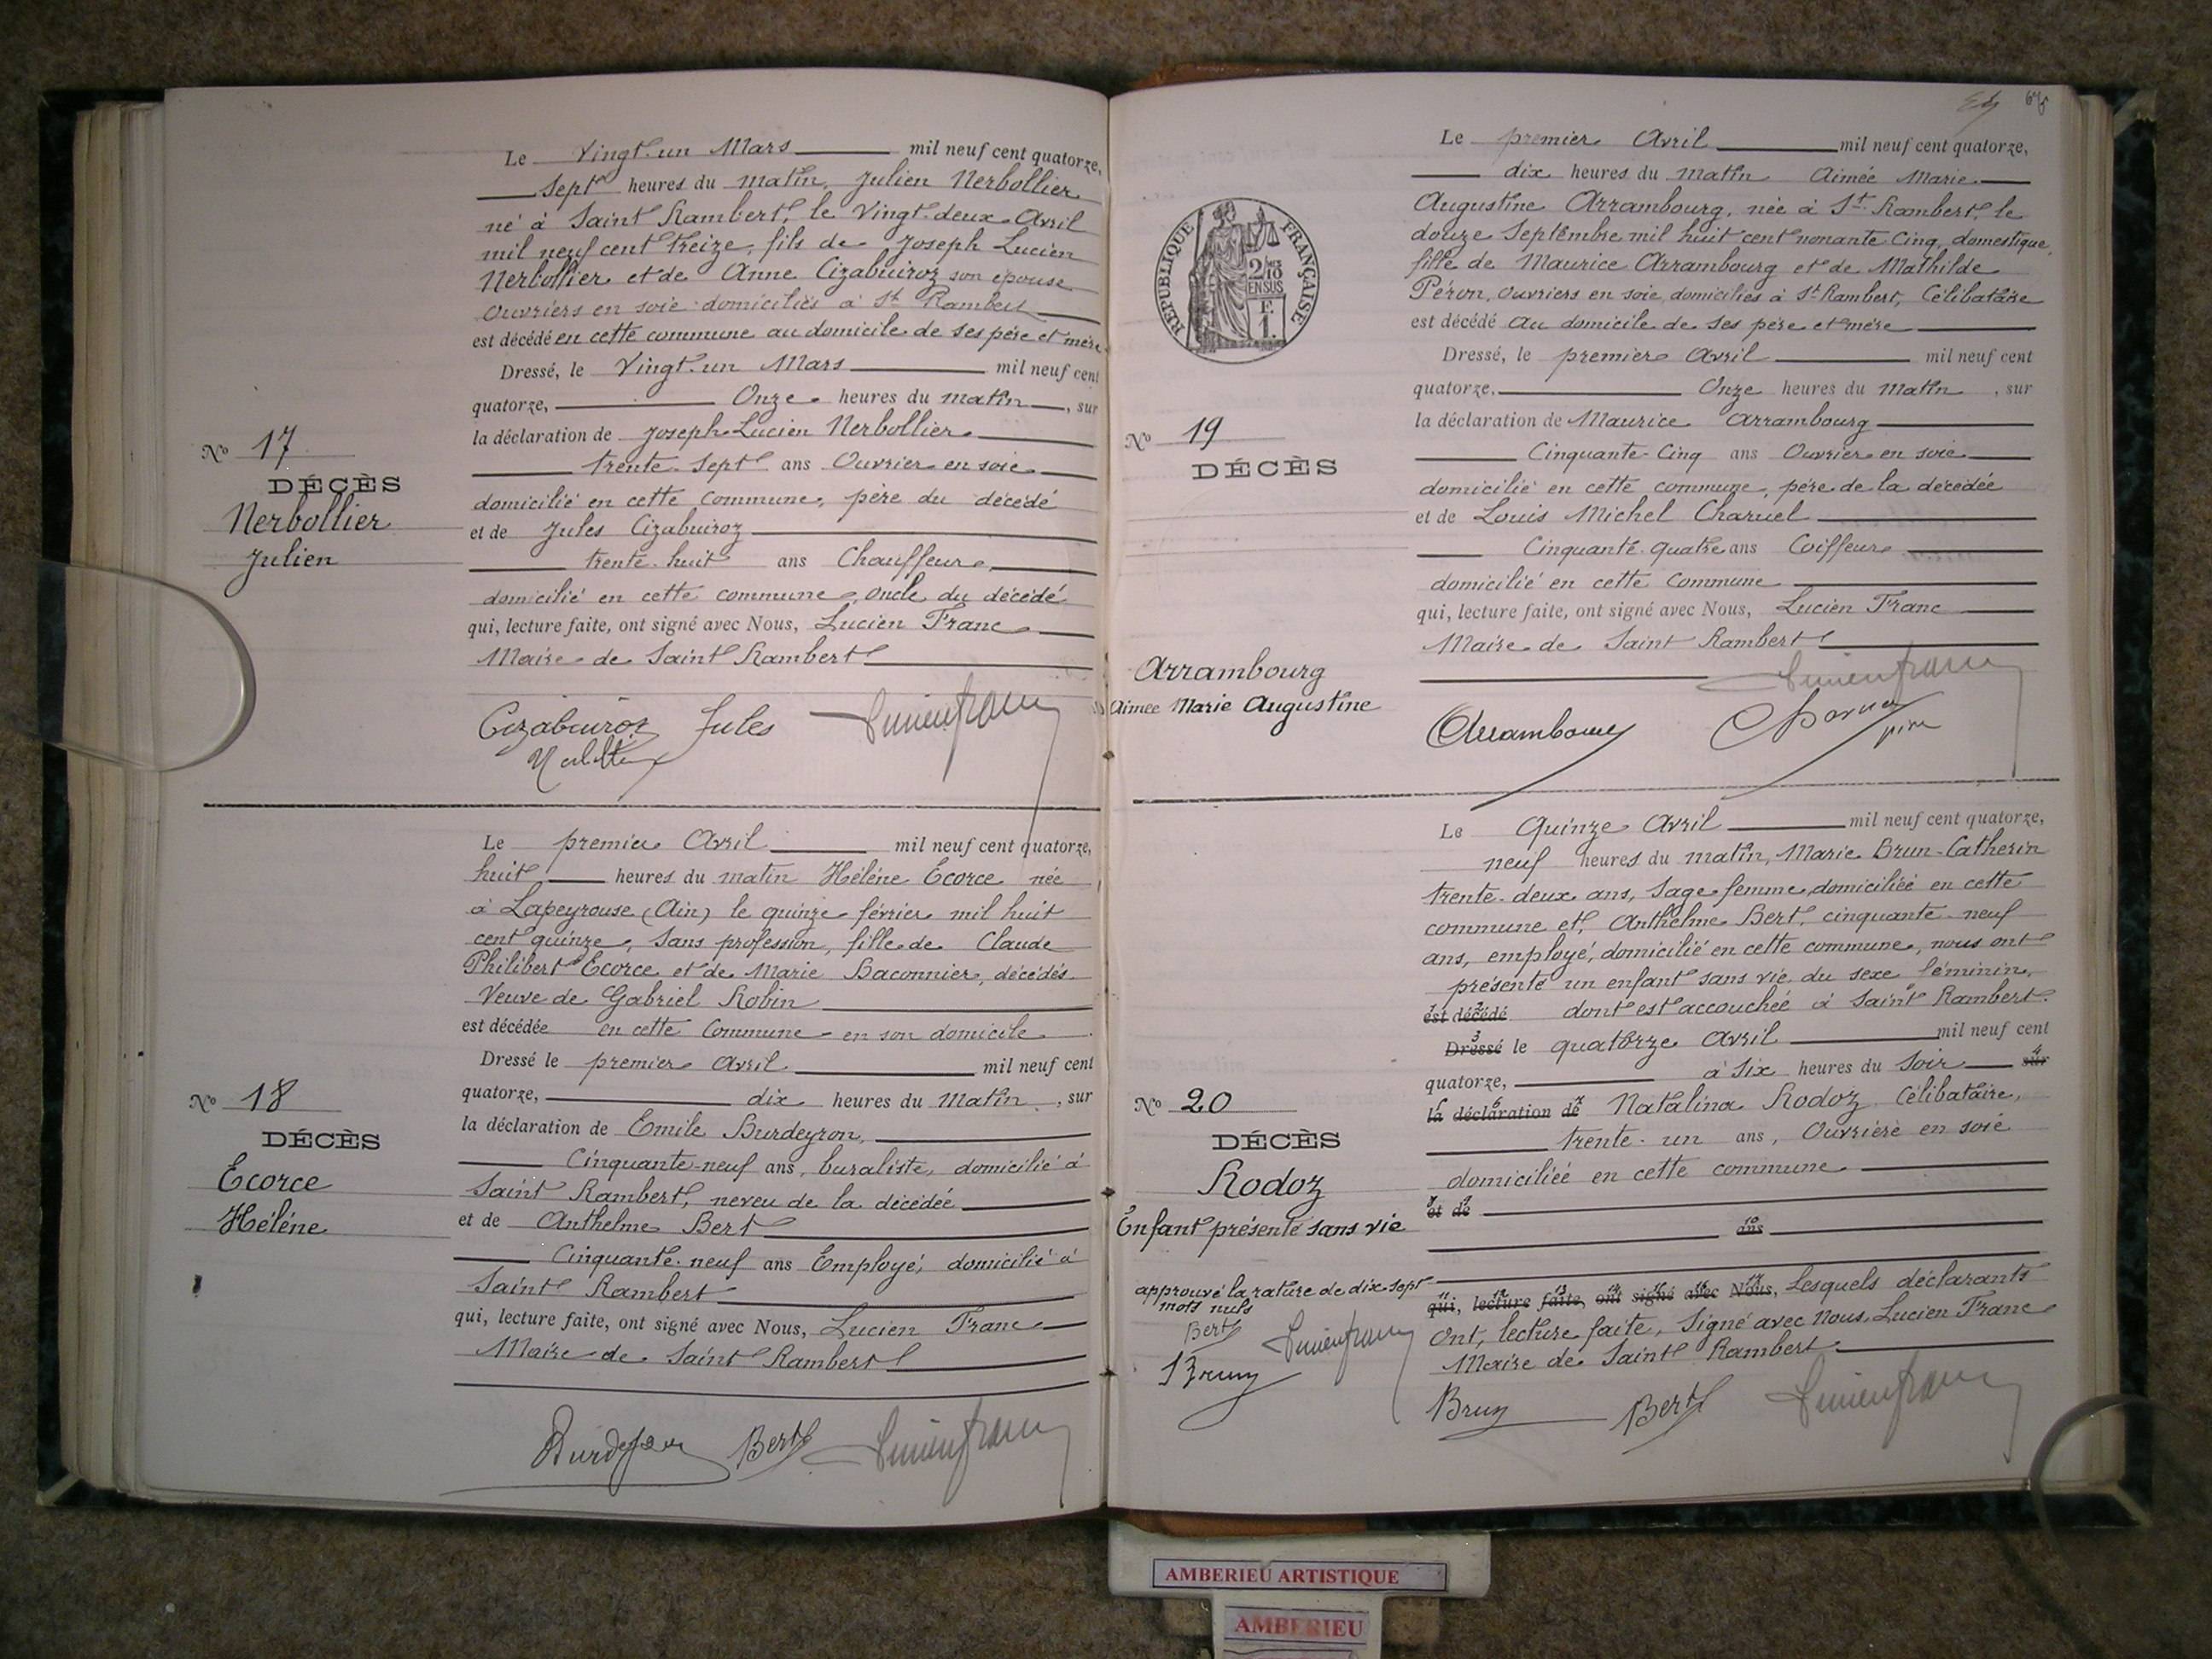 Le Vingt-un Mars mil neuf cent quatorze,
Sept heures du matin, Julien Nerbollier
né à Saint Rambert, le Vingt-deux Avril
mil neuf cent treize, fils de Joseph Lucien
Nerbollier et de Anne Cizabuiroz son épouse
Ouvriers en soie domiciliés à St Rambert
est décédé en cette commune au domicile de ses père et mère
Dressé, le Vingt-un Mars mil neuf cent
quatorze, Onze heures du matin, sur
la déclaration de Joseph Lucien Nerbollier
trente-sept ans Ouvrier en soie
domicilié en cette commune, père du décédé
et de Jules Cizabuiroz
trente-huit ans Chauffeur
domicilié en cette commune, oncle du décédé
qui, lecture faite, ont signé avec Nous, Lucien Franc
Maire de Saint Rambert
No 17
DÉCÈS
Nerbollier
Julien
Cizabuiroz Jules Lucien franc
Le premier Avril mil neuf cent quatorze,
huit heures du matin Hélène Ecorce née
à Lapeyrouse (Ain) le quinze février mil huit
cent quinze, Sans profession, fille de Claude
Philibert Ecorce et de Marie Baconnier, décédés
Veuve de Gabriel Robin
est décédée en cette Commune en son domicile
Dressé le premier Avril mil neuf cent
quatorze, dix heures du Matin, sur
la déclaration de Emile Burdeyron,
Cinquante-neuf ans, buraliste, domicilié à
Saint Rambert, neveu de la décédée
et de Anthelme Bert
Cinquante-neuf ans Employé, domicilié à
Saint Rambert
qui, lecture faite, ont signé avec Nous, Lucien Franc
Maire de Saint Rambert
No 18
DÉCÈS
Ecorce
Hélène
Burdeyron Bert Lucien franc
Le premier Avril mil neuf cent quatorze,
dix heures du matin Aimée Marie
Augustine Arrambourg, née à St Rambert, le
douze Septembre mil huit cent nonante Cinq, domestique,
fille de Maurice Arrambourg et de Mathilde
Péron, Ouvriers en soie, domiciliés à St Rambert, Célibataire
est décédé au domicile de ses père et mère
Dressé, le premier Avril mil neuf cent
quatorze, Onze heures du matin, sur
la déclaration de Maurice Arrambourg
Cinquante-Cinq ans Ouvrier en soie
domicilié en cette commune, père de la décédée
et de Louis Michel Charuel
Cinquante-quatre ans Coiffeur
domicilié en cette Commune
qui, lecture faite, ont signé avec Nous, Lucien Franc
Maire de Saint Rambert
REPUBLIQUE FRANÇAISE
2/10
EN SUS
F.
1.
No 19
DÉCÈS
Arrambourg
Aimée Marie Augustine
Lucien franc
Arrambourg
Le Quinze Avril mil neuf cent quatorze,
neuf heures du matin, Marie Brun-Catherin
trente-deux ans, Sage femme, domiciliée en cette
commune et, Anthelme Bert, cinquante-neuf
ans, employé, domicilié en cette commune, nous ont
présenté un enfant sans vie, du sexe féminin,
1 2
est décédé dont est accouchée à Saint Rambert.
3
Dressé le quatorze Avril mil neuf cent
quatorze, à Six heures du Soir sur 4
5 6 7
la déclaration de Natalina Rodoz Célibataire,
trente-un ans, Ouvrière en soie
domiciliée en cette commune
8 9
et de
10
ans
11 12 13 14 15 16 17
qui, lecture faite, ont signé avec Nous, Lesquels déclarants
Ont, lecture faite, Signé avec Nous, Lucien Franc
Maire de Saint Rambert
No 20
DÉCÈS
Rodoz
Enfant présenté sans vie
approuvé la rature de dix-sept
mots nuls
Bert Lucien franc
Brun
Brun Bert Lucien franc
AMBERIEU ARTISTIQUE
AMBERIEU